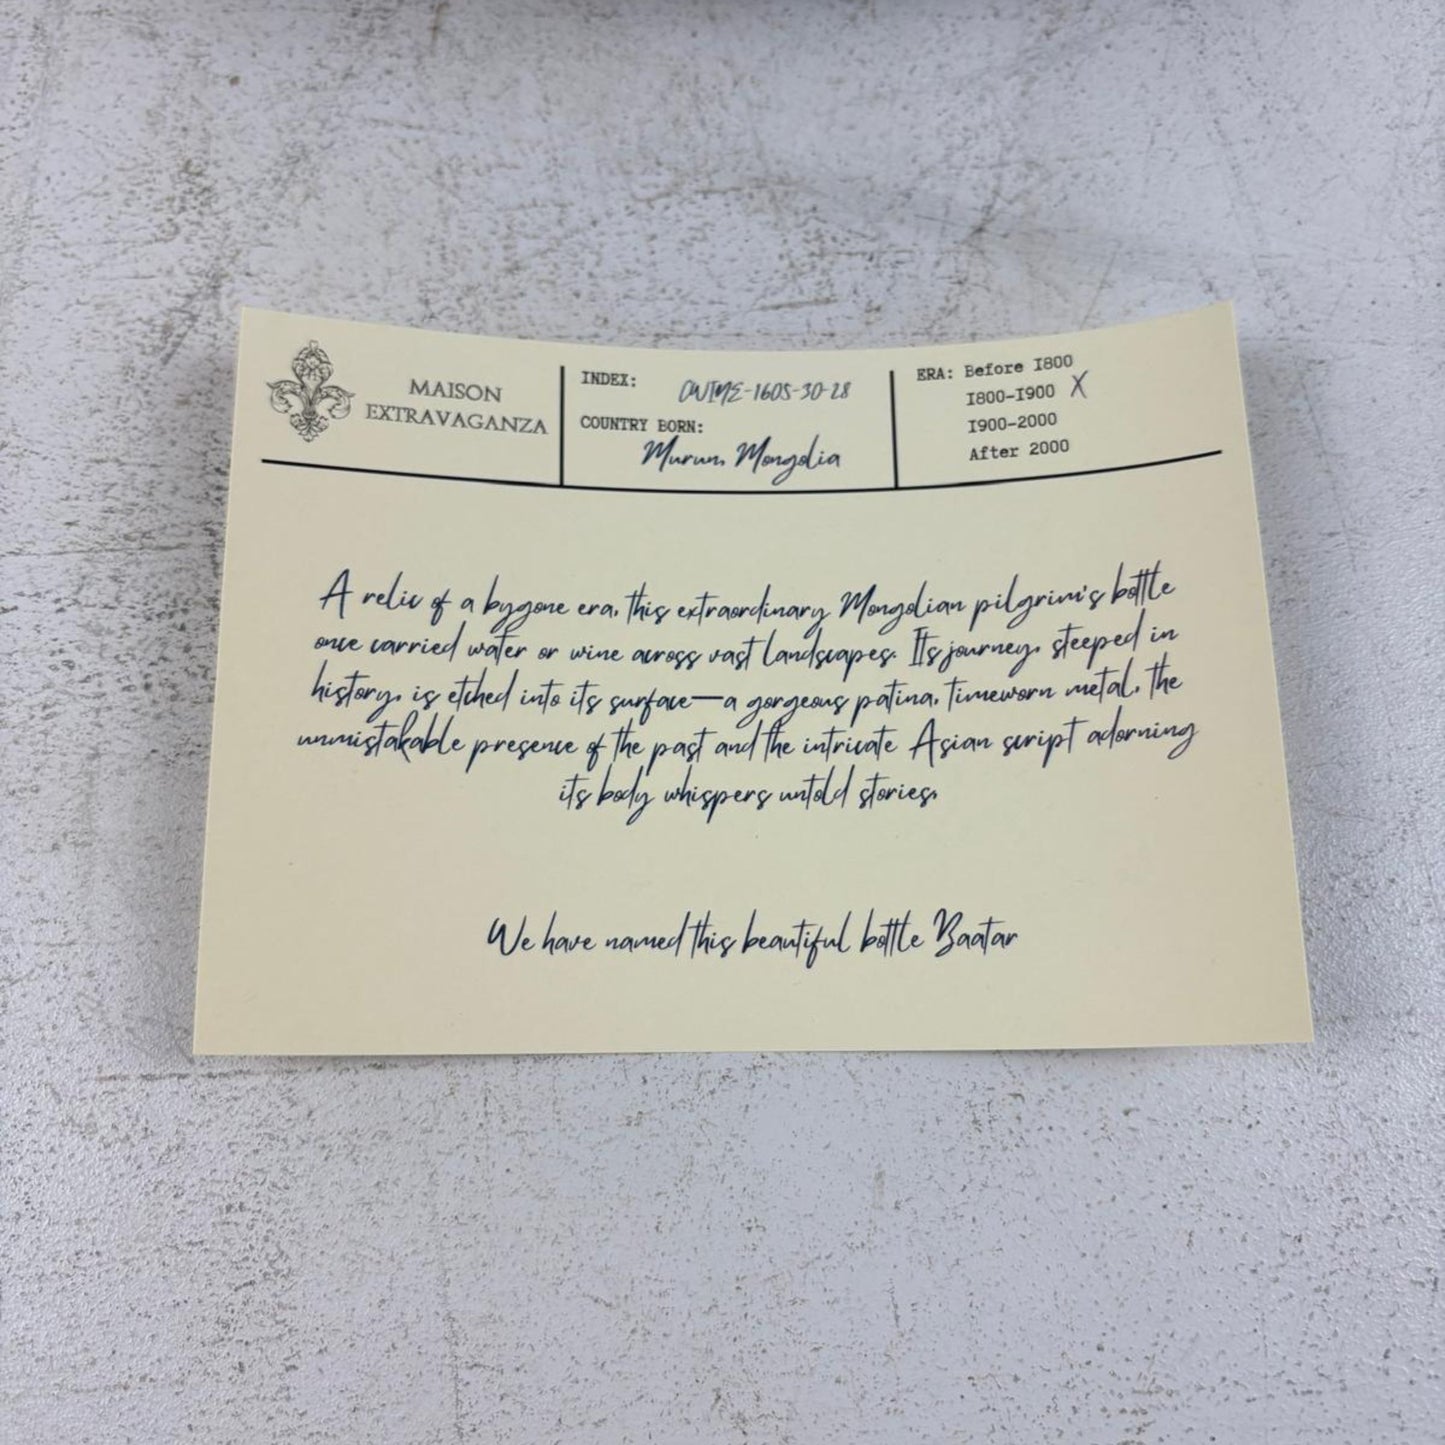 MAISON
EXTRAVAGANZA
INDEX:
COUNTRY BORN:
Murun, Mongolia
ERA: Before 1800
1800-1900 X
1900-2000
After 2000
A relic of a bygone era, this extraordinary Mongolian pilgrim's bottle
once carried water or wine across vast landscapes. Its journey, steeped in
history, is etched into its surface—a gorgeous patina, timeworn metal, the
unmistakable presence of the past and the intricate Asian script adorning
its body whispers untold stories.
We have named this beautiful bottle Baatar